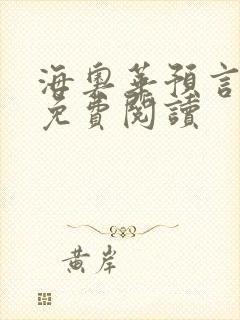 海奧華預言
免費閱讀
黃岸